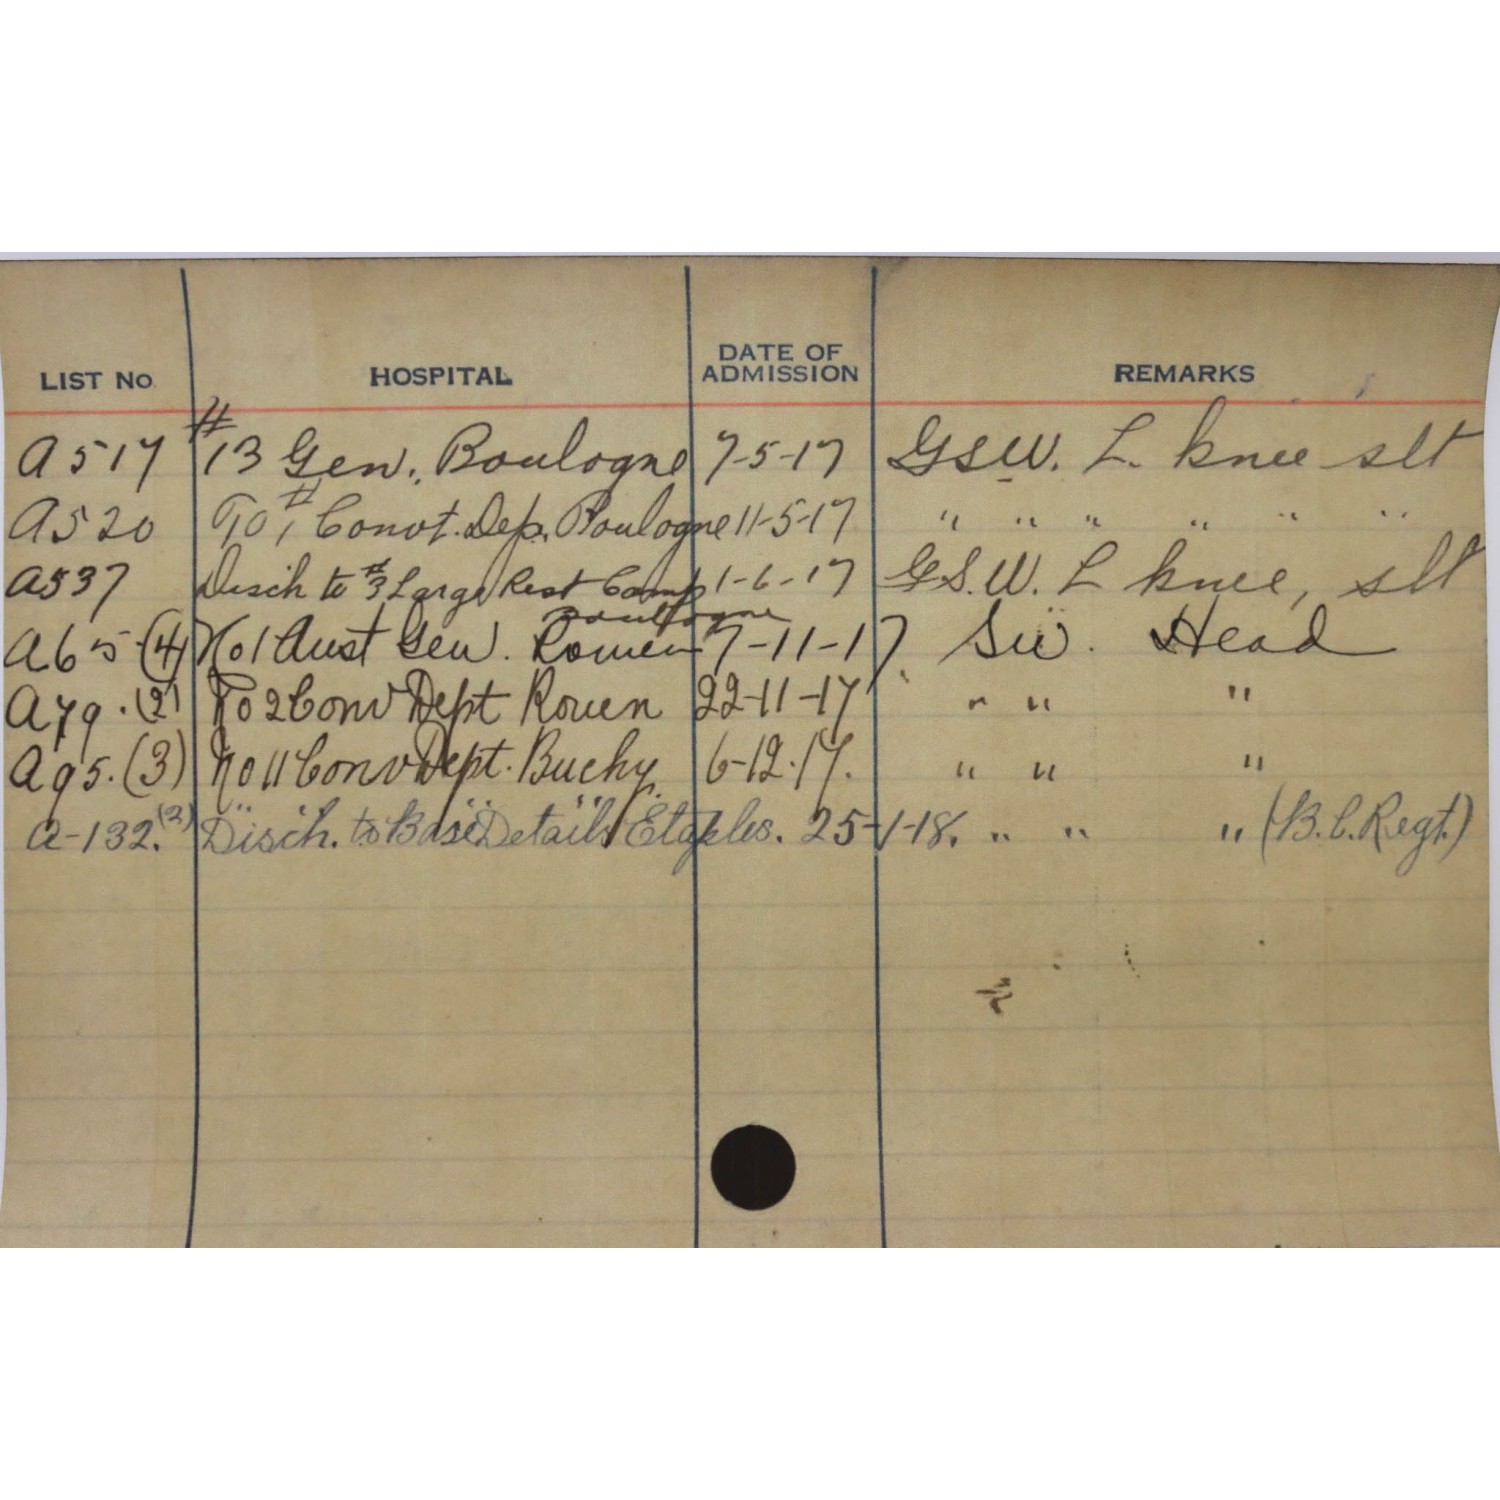 LIST No. HOSPITAL DATE OF ADMISSION REMARKS
A517 #13 Gen. Boulogne 7-5-17 GSW. L. knee slt
A520 To #1 Convt. Dep. Boulogne 11-5-17 " " " " " "
A537 Disch to #3 Large Rest Camp Boulogne 1-6-17 G.S.W. L knee, slt
A65 (4) No 1 Aust Gen. Rouen 7-11-17 SW. Head
A79. (2) No 2 Conv Dept Rouen 22-11-17 " " "
A95. (3) No 11 Conv Dept. Buchy. 6-12-17. " " "
A-132. (2) Disch. to Base Details Etaples. 25-1-18. " " " (B.C. Regt.)